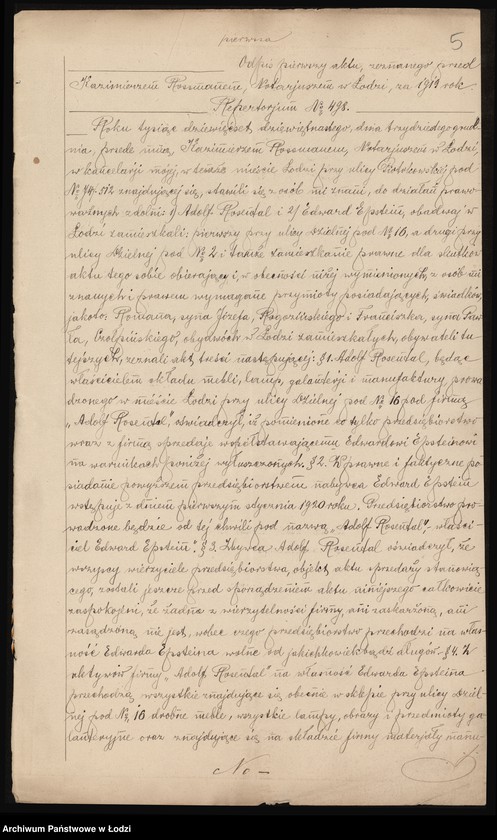 pierwsza
5
Odpis pierwszy aktu, zeznanego przed
Kazimierzem Rossmanem, Notarjuszem w Łodzi, za 1919 rok.
Repertorjum № 498.
Roku tysiąc dziewięćset dziewiętnastego, dnia trzydziestego grud-
nia, przede mną, Kazimierzem Rossmanem, Notarjuszem w Łodzi,
w kancelarji mojej, w temże mieście Łodzi przy ulicy Piotrkowskiej pod
znajdującej się, stawili się z osób mi znani, do działań prawo-
walnych zdolni: 1/ Adolf Rosental i 2/ Edward Epstein, obadwaj w
Łodzi zamieszkali: pierwszy przy ulicy Dzielnej pod № 16, a drugi przy
ulicy Dzielnej pod № 2 i tamże zamieszkanie prawne dla skutków
aktu tego sobie obierający i, w obecności niżej wymienionych, z osób mi
znanych i prawem wymagane przymioty posiadających, świadków,
jakoto: Romana, syna Józefa, i Franciszka, syna Paw-
ła, obydwóch w Łodzi zamieszkałych, obywateli tu-
tejszych, zeznali akt treści następującej: § 1. Adolf Rosental, będąc
właścicielem składu mebli, lamp, galanterji i manufaktury prowa-
dzonego w mieście Łodzi przy ulicy Dzielnej pod № 16 pod firmą
„Adolf Rosental", oświadczył, iż pomienione to tylko przedsiębiorstwo
wraz z firmą sprzedaje współstawającemu Edwardowi Epsteinowi
na warunkach poniżej wyłuszczonych. § 2. W prawne i faktyczne po-
siadanie powyższem przedsiębiorstwem nabywca Edward Epstein
wstępuje z dniem pierwszym stycznia 1920 roku. Przedsiębiorstwo pro-
wadzone będzie od tej chwili pod nazwą „Adolf Rosental", właści-
ciel Edward Epstein". § 3. Zbywca Adolf Rosental oświadczył, że
wszyscy wierzyciele przedsiębiorstwa, objekt aktu sprzedaży stanowią-
cego, zostali jeszcze przed sporządzeniem aktu niniejszego całkowicie
zaspokojeni, że żadna z wierzytelności firmy, ani zaskarżoną, ani
zasądzoną nie jest, wobec czego przedsiębiorstwo przechodzi na włas-
ność Edwarda Epsteina wolne od jakichkolwiekbądź długów. § 4. Z
aktywów firmy „Adolf Rosental" na własność Edwarda Epsteina
przechodzą wszystkie znajdujące się obecnie w sklepie przy ulicy Dziel-
nej pod № 16 drobne meble, wszystkie lampy, obrazy i przedmioty ga-
lanteryjne oraz znajdujące się na składzie firmy materjały manu-
No –
Archiwum Państwowe w Łodzi